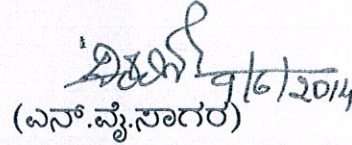 9/6/2014
(ಎನ್.ವೈ.ಸಾಗರ)